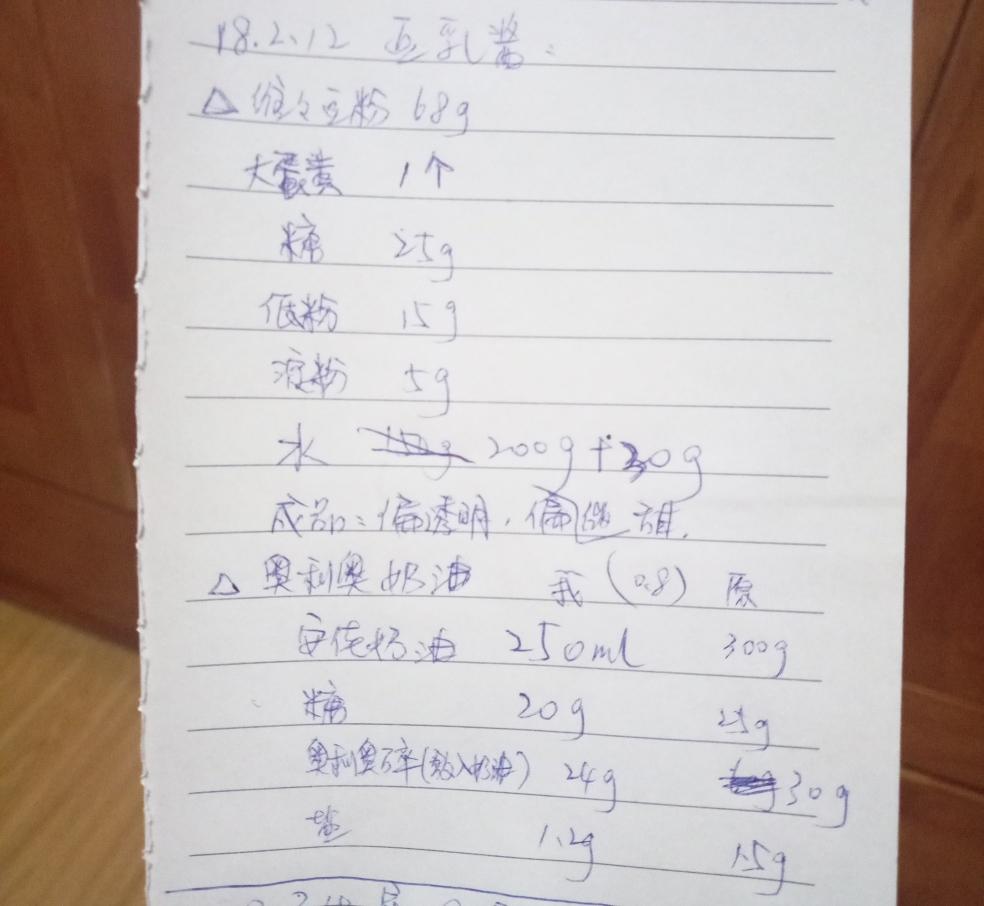 18.2.12 豆乳酱:
△ 维々豆粉 68g
大蛋黄 1个
糖 25g
低粉 15g
淀粉 5g
水 200g+30g
成品:偏透明,偏
△ 奥利奥奶油 我(0.8) 原
安佳奶油 250ml 300g
糖 20g 25g
奥利奥碎(放入奶油) 24g 30g
盐 1.2g 1.5g